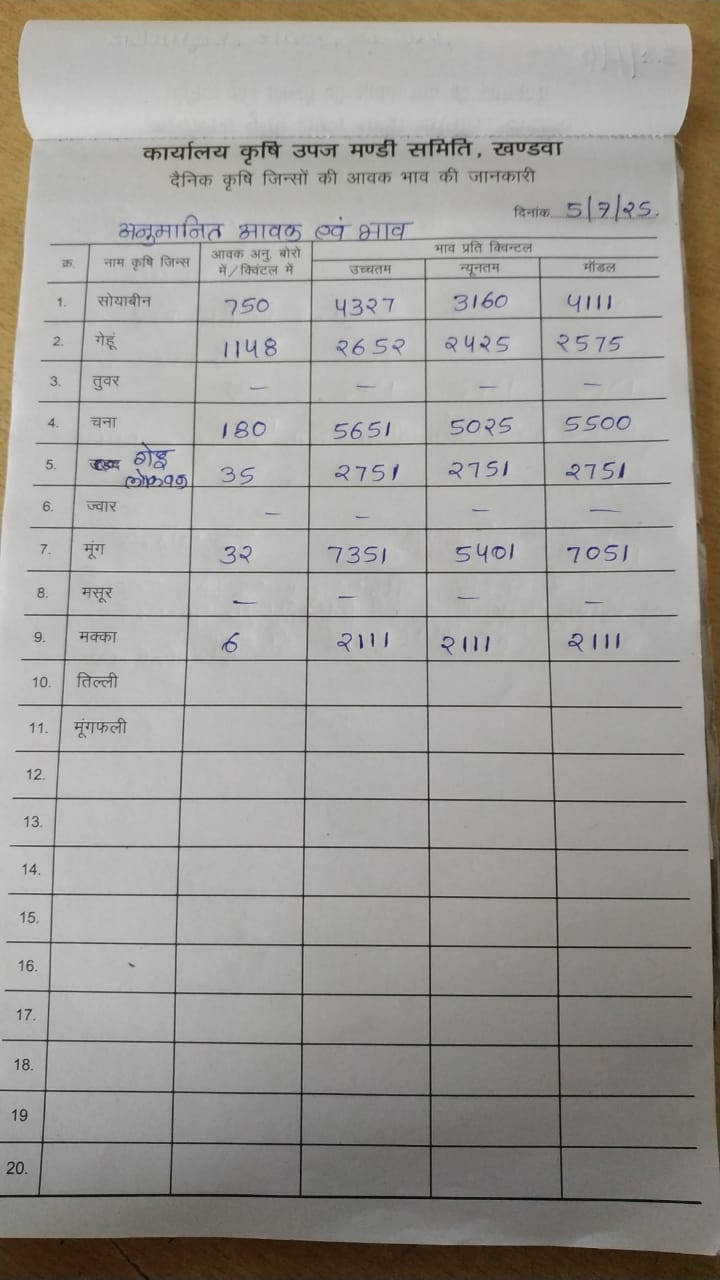 कार्यालय कृषि उपज मण्डी समिति, खण्डवा
दैनिक कृषि जिन्सों की आवक भाव की जानकारी
दिनांक 5/7/25.
अनुमानित आवक एवं भाव
क्र. नाम कृषि जिन्स आवक अनु. बोरो में/क्विंटल में भाव प्रति क्विन्टल
उच्चतम न्यूनतम मॉडल
1. सोयाबीन 750 4327 3160 4111
2. गेहूं 1148 2652 2425 2575
3. तुवर – – – –
4. चना 180 5651 5025 5500
5. गेहू लोकवन 35 2751 2751 2751
6. ज्वार – – – –
7. मूंग 32 7351 5401 7051
8. मसूर – – – –
9. मक्का 6 2111 2111 2111
10. तिल्ली
11. मूंगफली
12.
13.
14.
15.
16.
17.
18.
19
20.